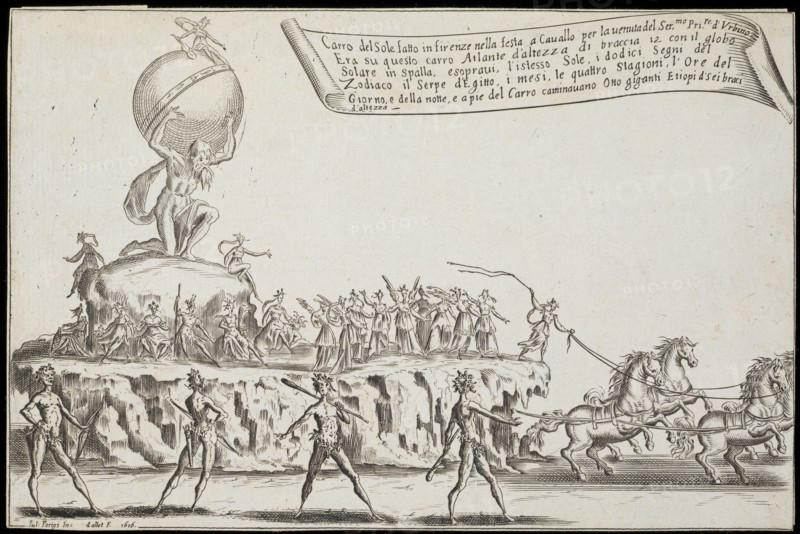 Carro del Sole fatto in firenze nella festa a Cauallo per la uenuta del Ser.mo Pri.pe d'Vrbino
Era su questo carro Atlante d'altezza di braccia 12 con il globo
Solare in Spalla, esopraui, l'istesso Sole, i dodici Segni del
Zodiaco il Serpe d'Egitto, i mesi, le quattro Stagioni, l'Ore del
Giorno, e della notte, e a pie del Carro caminauano Otto giganti Etiopi d'Sei braci
d'altezza
Iul. Parigi In: Callot F. 1616.
PHOTO12
PHOTO12
PHOTO12